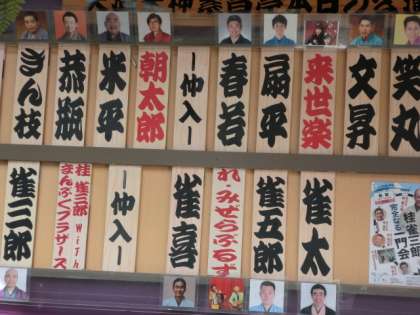 笑丸
文昇
来世楽
扇平
春若
―仲入―
朝太郎
米平
恭瓶
きん枝
雀太
雀五郎
れ・みぜらぶるず
雀喜
―仲入―
桂 雀三郎 With
まんぷくブラザーズ
雀三郎
桂雀三郎
一門会